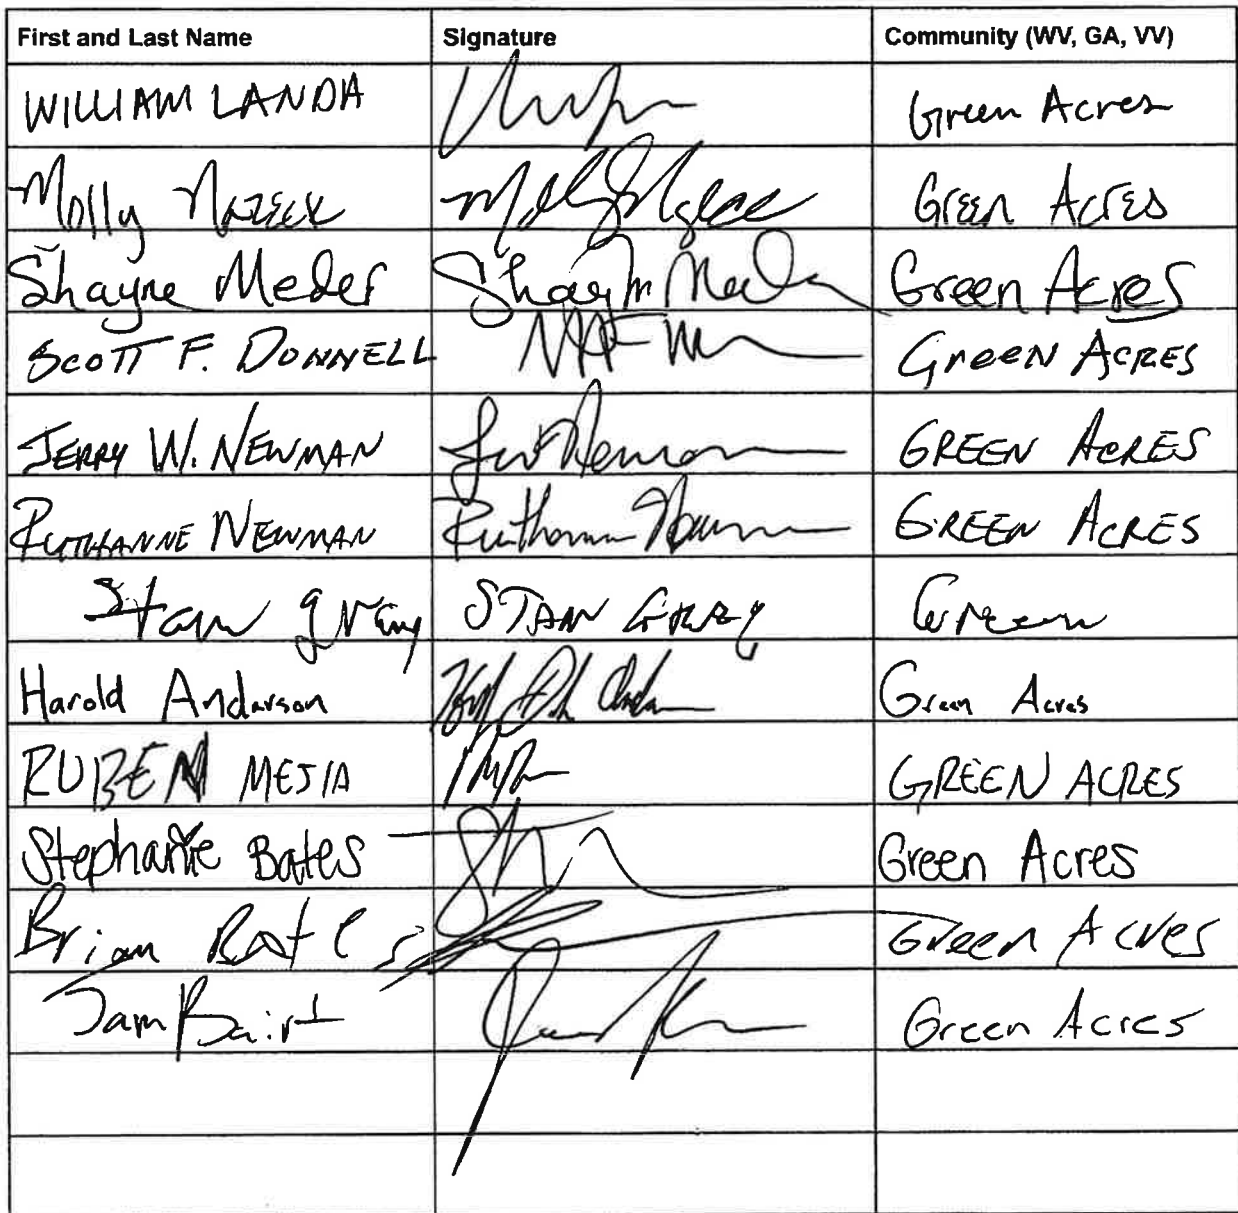 First and Last Name Signature Community (WV, GA, VV)
WILLIAM LANDA Green Acres
Molly Green Acres
Shayne Meder Shayne Meder Green Acres
SCOTT F. DONNELL GreeN ACRES
JERRY W. NEWMAN Newman GREEN ACRES
RUTHANNE NEWMAN Ruthanne Newman GREEN ACRES
Stan Gray STAN GRAY Green
Harold Anderson Green Acres
RUBEN MEJIA GREEN ACRES
Stephanie Bates Green Acres
Brian Bates Green Acres
Green Acres